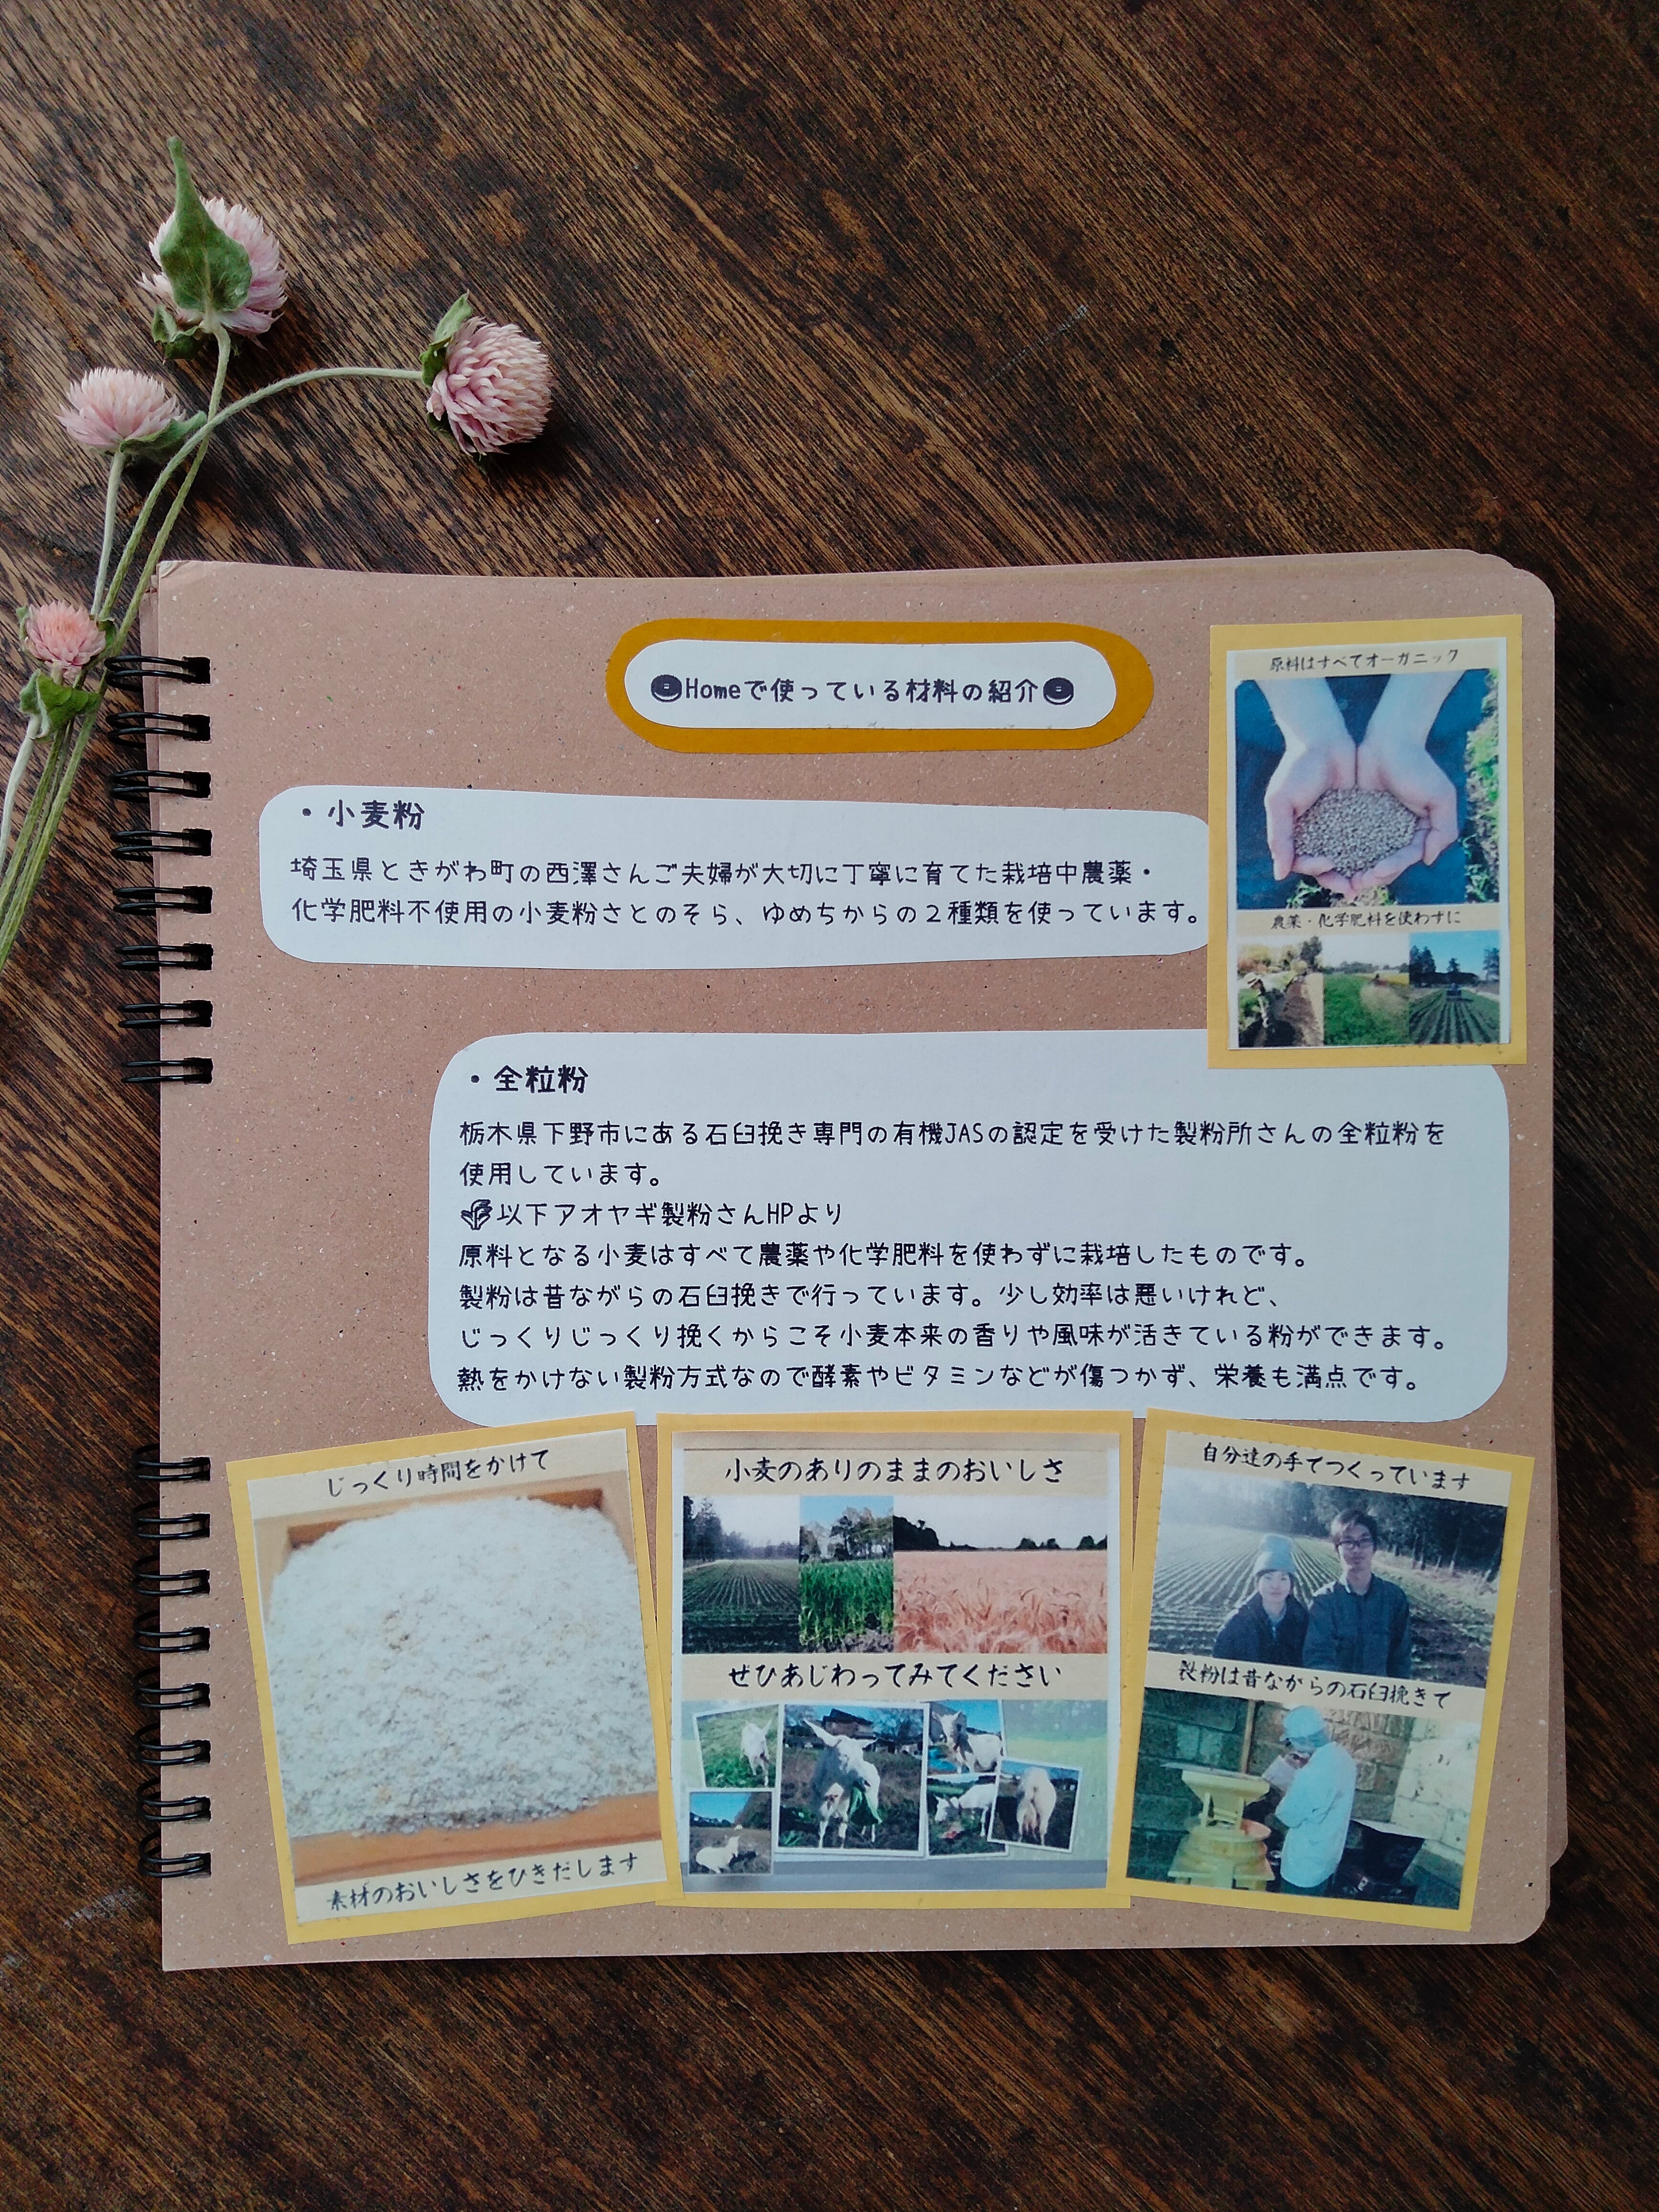 Homeで使っている材料の紹介
・小麦粉
埼玉県ときがわ町の西澤さんご夫婦が大切に丁寧に育てた栽培中農薬・
化学肥料不使用の小麦粉さとのそら、ゆめちからの2種類を使っています。
原料はすべてオーガニック
農薬・化学肥料を使わずに
・全粒粉
栃木県下野市にある石臼挽き専門の有機JASの認定を受けた製粉所さんの全粒粉を
使用しています。
以下アオヤギ製粉さんHPより
原料となる小麦はすべて農薬や化学肥料を使わずに栽培したものです。
製粉は昔ながらの石臼挽きで行っています。少し効率は悪いけれど、
じっくりじっくり挽くからこそ小麦本来の香りや風味が活きている粉ができます。
熱をかけない製粉方式なので酵素やビタミンなどが傷つかず、栄養も満点です。
じっくり時間をかけて
素材のおいしさをひきだします
小麦のありのままのおいしさ
ぜひあじわってみてください
自分達の手でつくっています
製粉は昔ながらの石臼挽きで